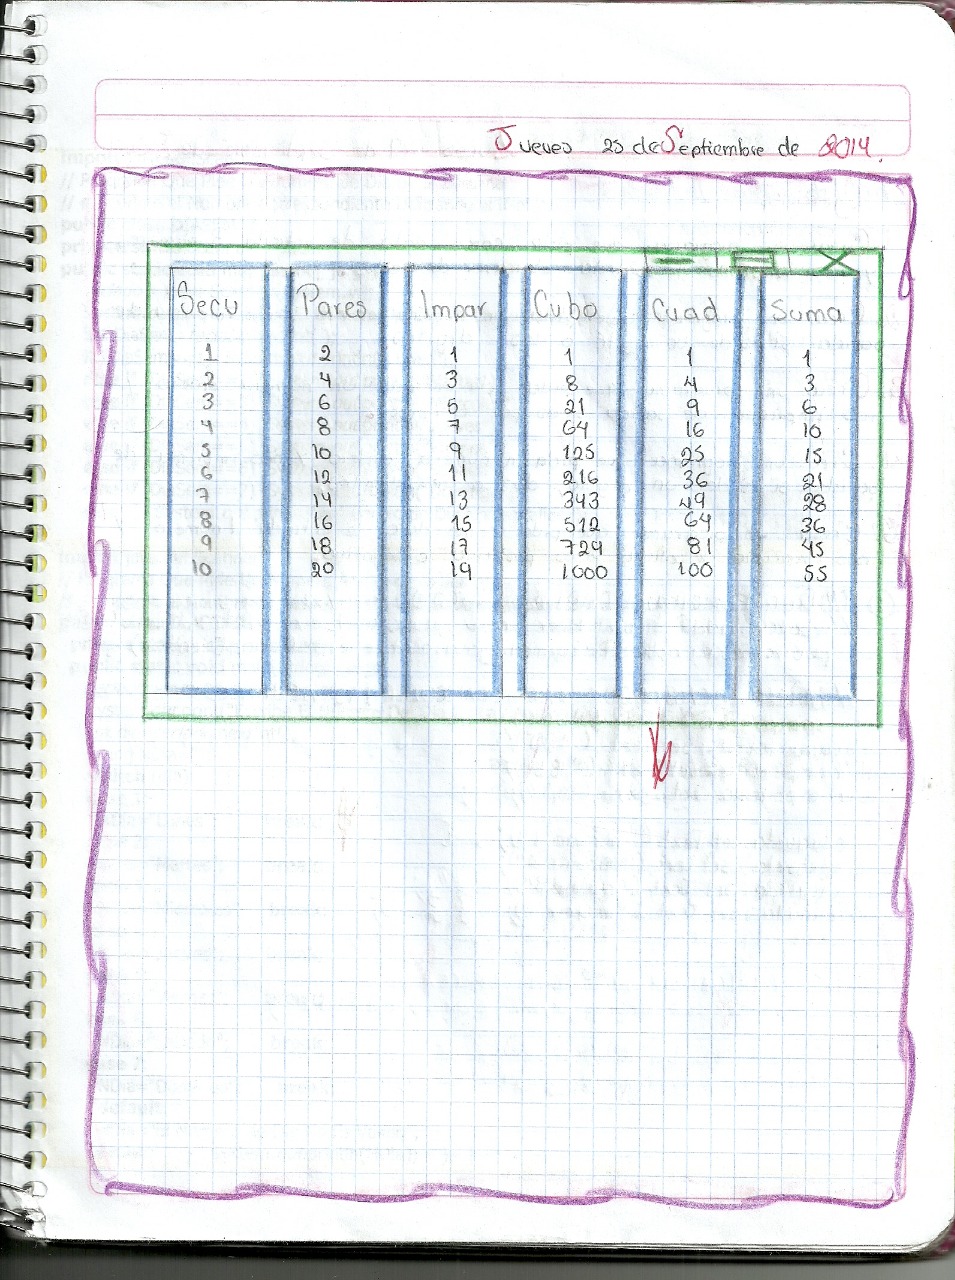 Jueves 25 de Septiembre de 2014.
Secu Pares Impar Cubo Cuad Suma
1 2 1 1 1 1
2 4 3 8 4 3
3 6 5 21 9 6
4 8 7 64 16 10
5 10 9 125 25 15
6 12 11 216 36 21
7 14 13 343 49 28
8 16 15 512 64 36
9 18 17 729 81 45
10 20 19 1000 100 55